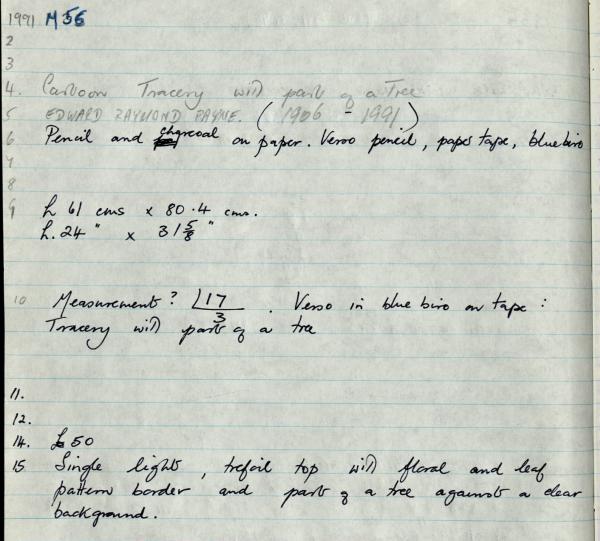 1991 M56
2
3
4. Cartoon Tracery with part of a Tree
5 EDWARD RAYMOND PAYNE. (1906 - 1991)
6 Pencil and charcoal on paper. Verso pencil, paper tape, blue biro
7
8
9 h 61 cms x 80.4 cms.
h. 24" x 31 5/8"
10 Measurement? 17/3. Verso in blue biro on tape:
Tracery with part of a tree
11.
12.
14. £50
15 Single light, trefoil top with floral and leaf
pattern border and part of a tree against a clear
background.